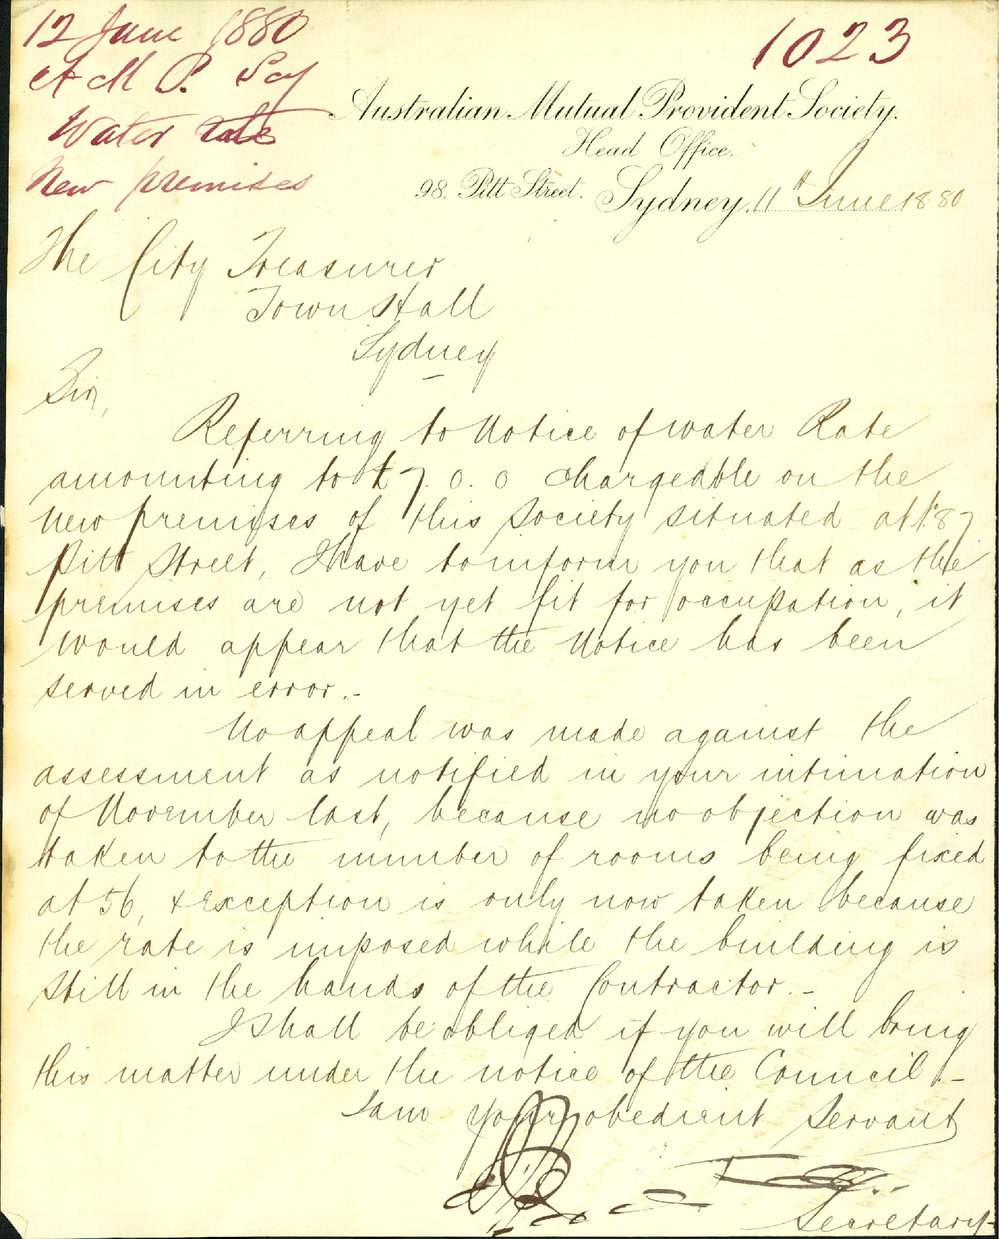 12 June 1880
A M P. Socy
Water rate
New premises
1023
Australian Mutual Provident Society.
Head Office.
98. Pitt Street. Sydney, 11th June 1880
The City Treasurer
Town Hall
Sydney
Sir,
Referring to Notice of water Rate
amounting to £7. 0. 0 chargeable on the
new premises of this Society situated at 87
Pitt Street, I have to inform you that as the
premises are not yet fit for occupation, it
would appear that the Notice has been
served in error.-
No appeal was made against the
assessment as notified in your intimation
of November last, because no objection was
taken to the number of rooms being fixed
at 56, & exception is only now taken because
the rate is imposed while the building is
still in the hands of the Contractor.-
I shall be obliged if you will bring
this matter under the notice of the Council.-
I am your obedient Servant
Secretary